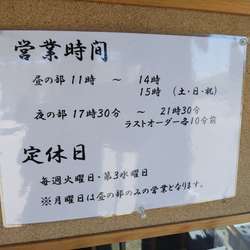 営業時間
昼の部 11時 ～ 14時
15時 (土・日・祝)
夜の部 17時30分 ～ 21時30分
ラストオーダー各10分前
定休日
毎週火曜日・第3水曜日
※月曜日は昼の部のみの営業となります。